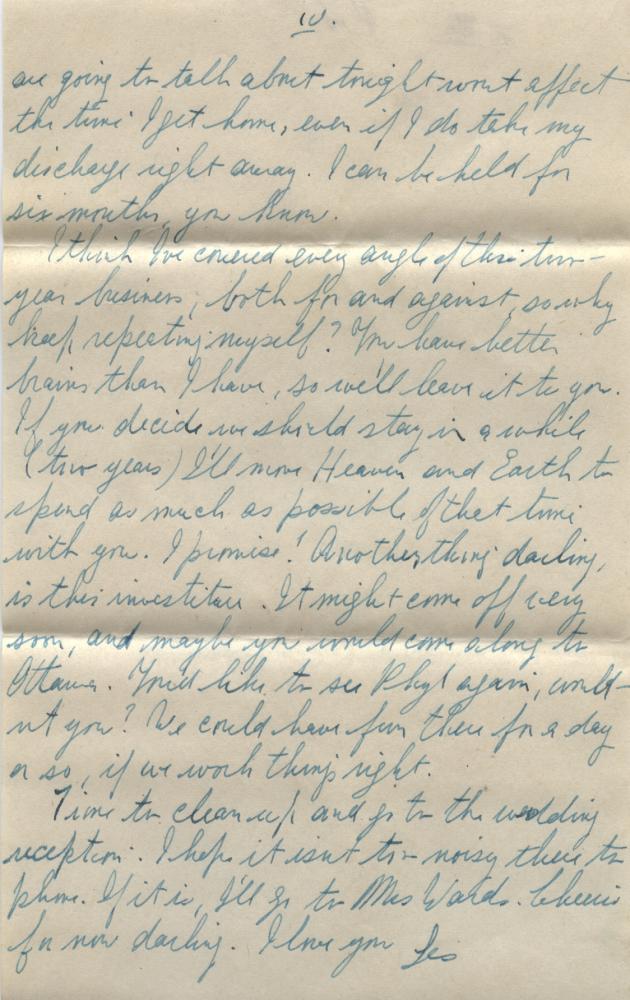 IV.
are going to talk about tonight wont affect
the time I get home, even if I do take my
discharge right away. I can be held for
six months, you know.
I think I've covered every angle of this two-
year business, both for and against, so why
keep repeating myself? You have better
brains than I have, so we'll leave it to you.
If you decide we should stay in a while
(two years) I'll move Heaven and Earth to
spend as much as possible of that time
with you. I promise! Another thing darling,
is this investiture. It might come off very
soon, and maybe you would come along to
Ottawa. You'd like to see Phyl again, would-
nt you? We could have fun there for a day
or so, if we work things right.
Time to clean up and go to the wedding
reception. I hope it isnt too noisy there to
phone. If it is, I'll go to Mrs Wards. Cheerio
for now darling. I love you Les